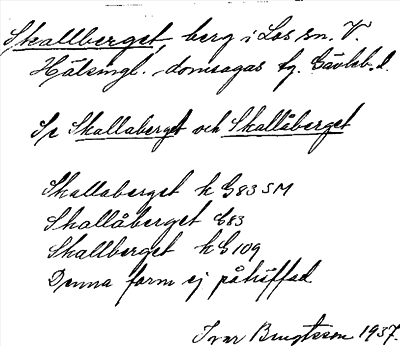 Skallberget, berg i Los sn. V.
Hälsingl. domsagas tg. Gävleb. l.
Se Skallaberget och Skallåberget
Skallaberget k G83 SM
Skallåberget G83
Skallberget k G 109
Denna form ej påträffad
Ivar Bengtsson 1937.